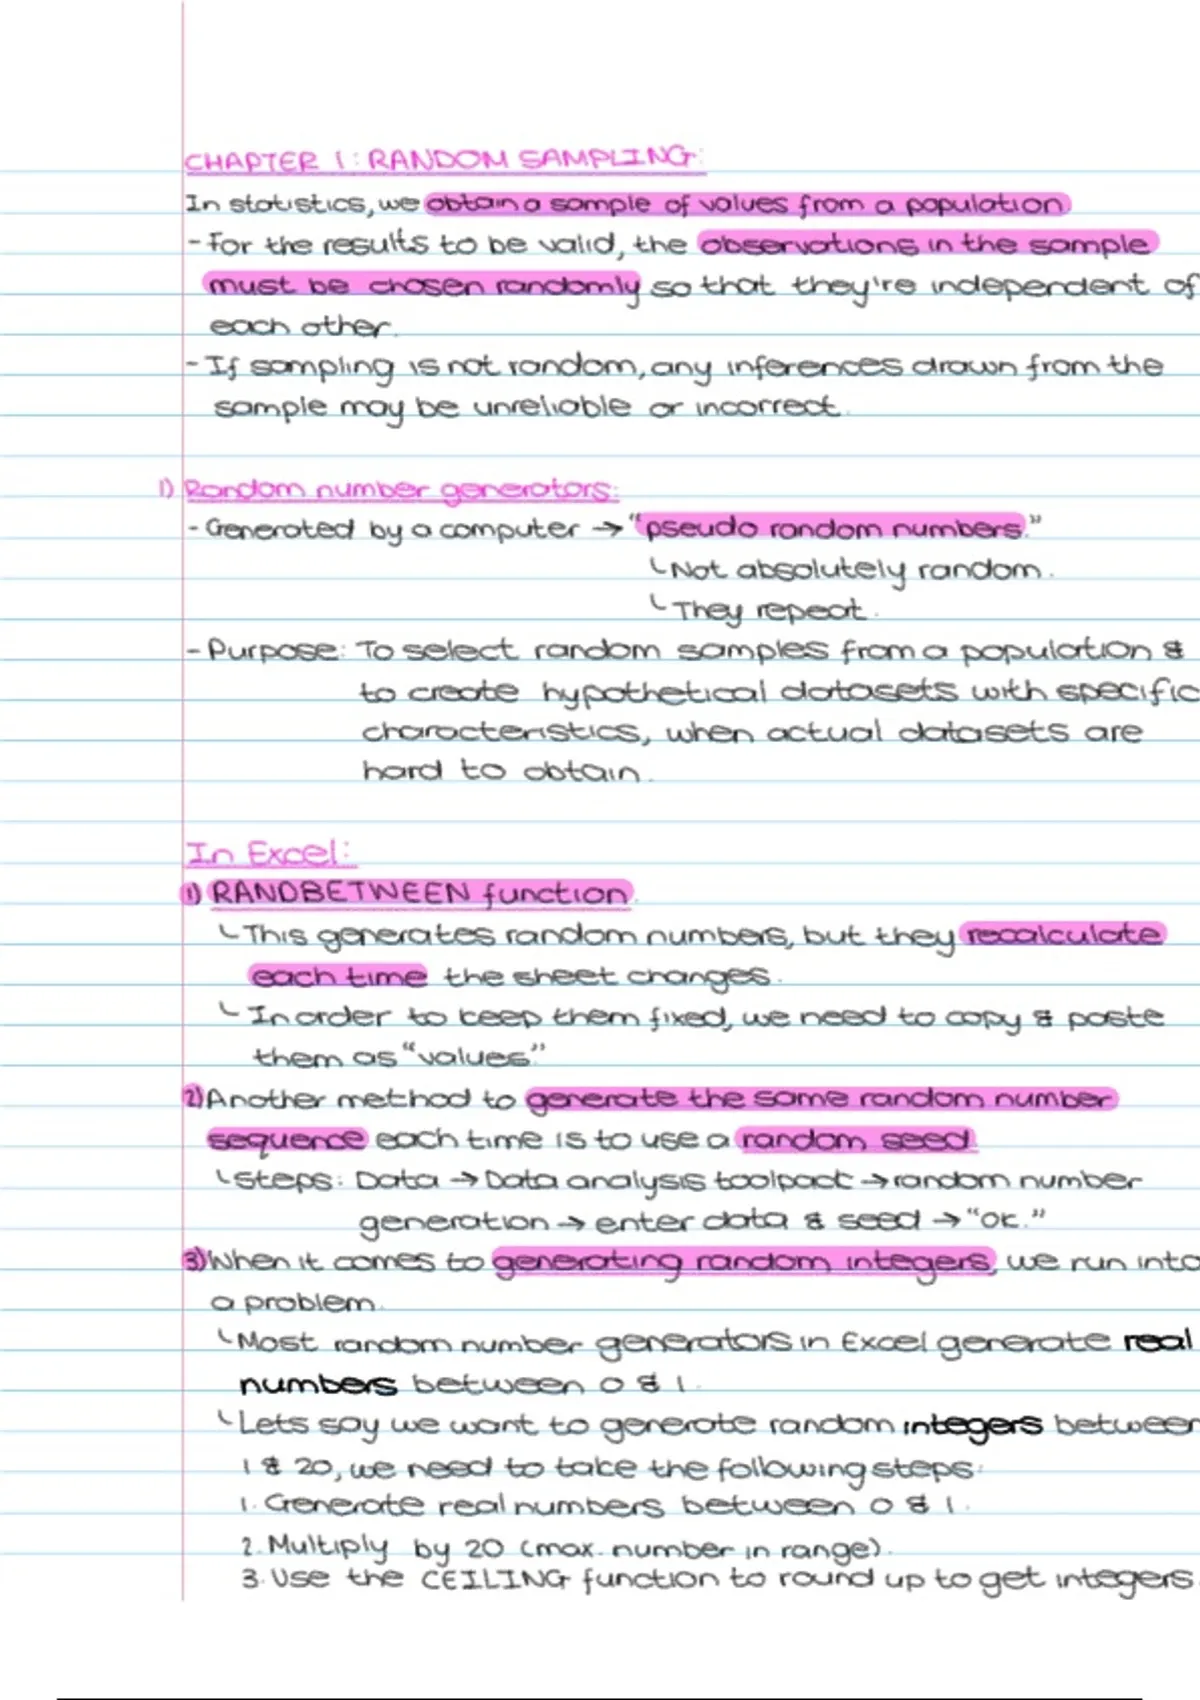 CHAPTER 1: RANDOM SAMPLING:
In statistics, we obtain a sample of values from a population
- For the results to be valid, the observations in the sample
must be chosen randomly so that they're independent of
each other.
- If sampling is not random, any inferences drawn from the
sample may be unreliable or incorrect.
1) Random number generators:
- Generated by a computer → "pseudo random numbers."
↳ Not absolutely random.
↳ They repeat.
- Purpose: To select random samples from a population &
to create hypothetical datasets with specific
characteristics, when actual datasets are
hard to obtain.
In Excel:
1) RANDBETWEEN function.
↳ This generates random numbers, but they recalculate
each time the sheet changes.
↳ In order to keep them fixed, we need to copy & paste
them as "values"
2) Another method to generate the same random number
sequence each time is to use a random seed.
↳ Steps: Data → Data analysis toolpack → random number
generation → enter data & seed → "ok."
3) When it comes to generating random integers, we run into
a problem.
↳ Most random number generators in Excel generate real
numbers between 0 & 1.
↳ Lets say we want to generate random integers between
1 & 20, we need to take the following steps:
1. Generate real numbers between 0 & 1.
2. Multiply by 20 (max. number in range).
3. Use the CEILING function to round up to get integers.